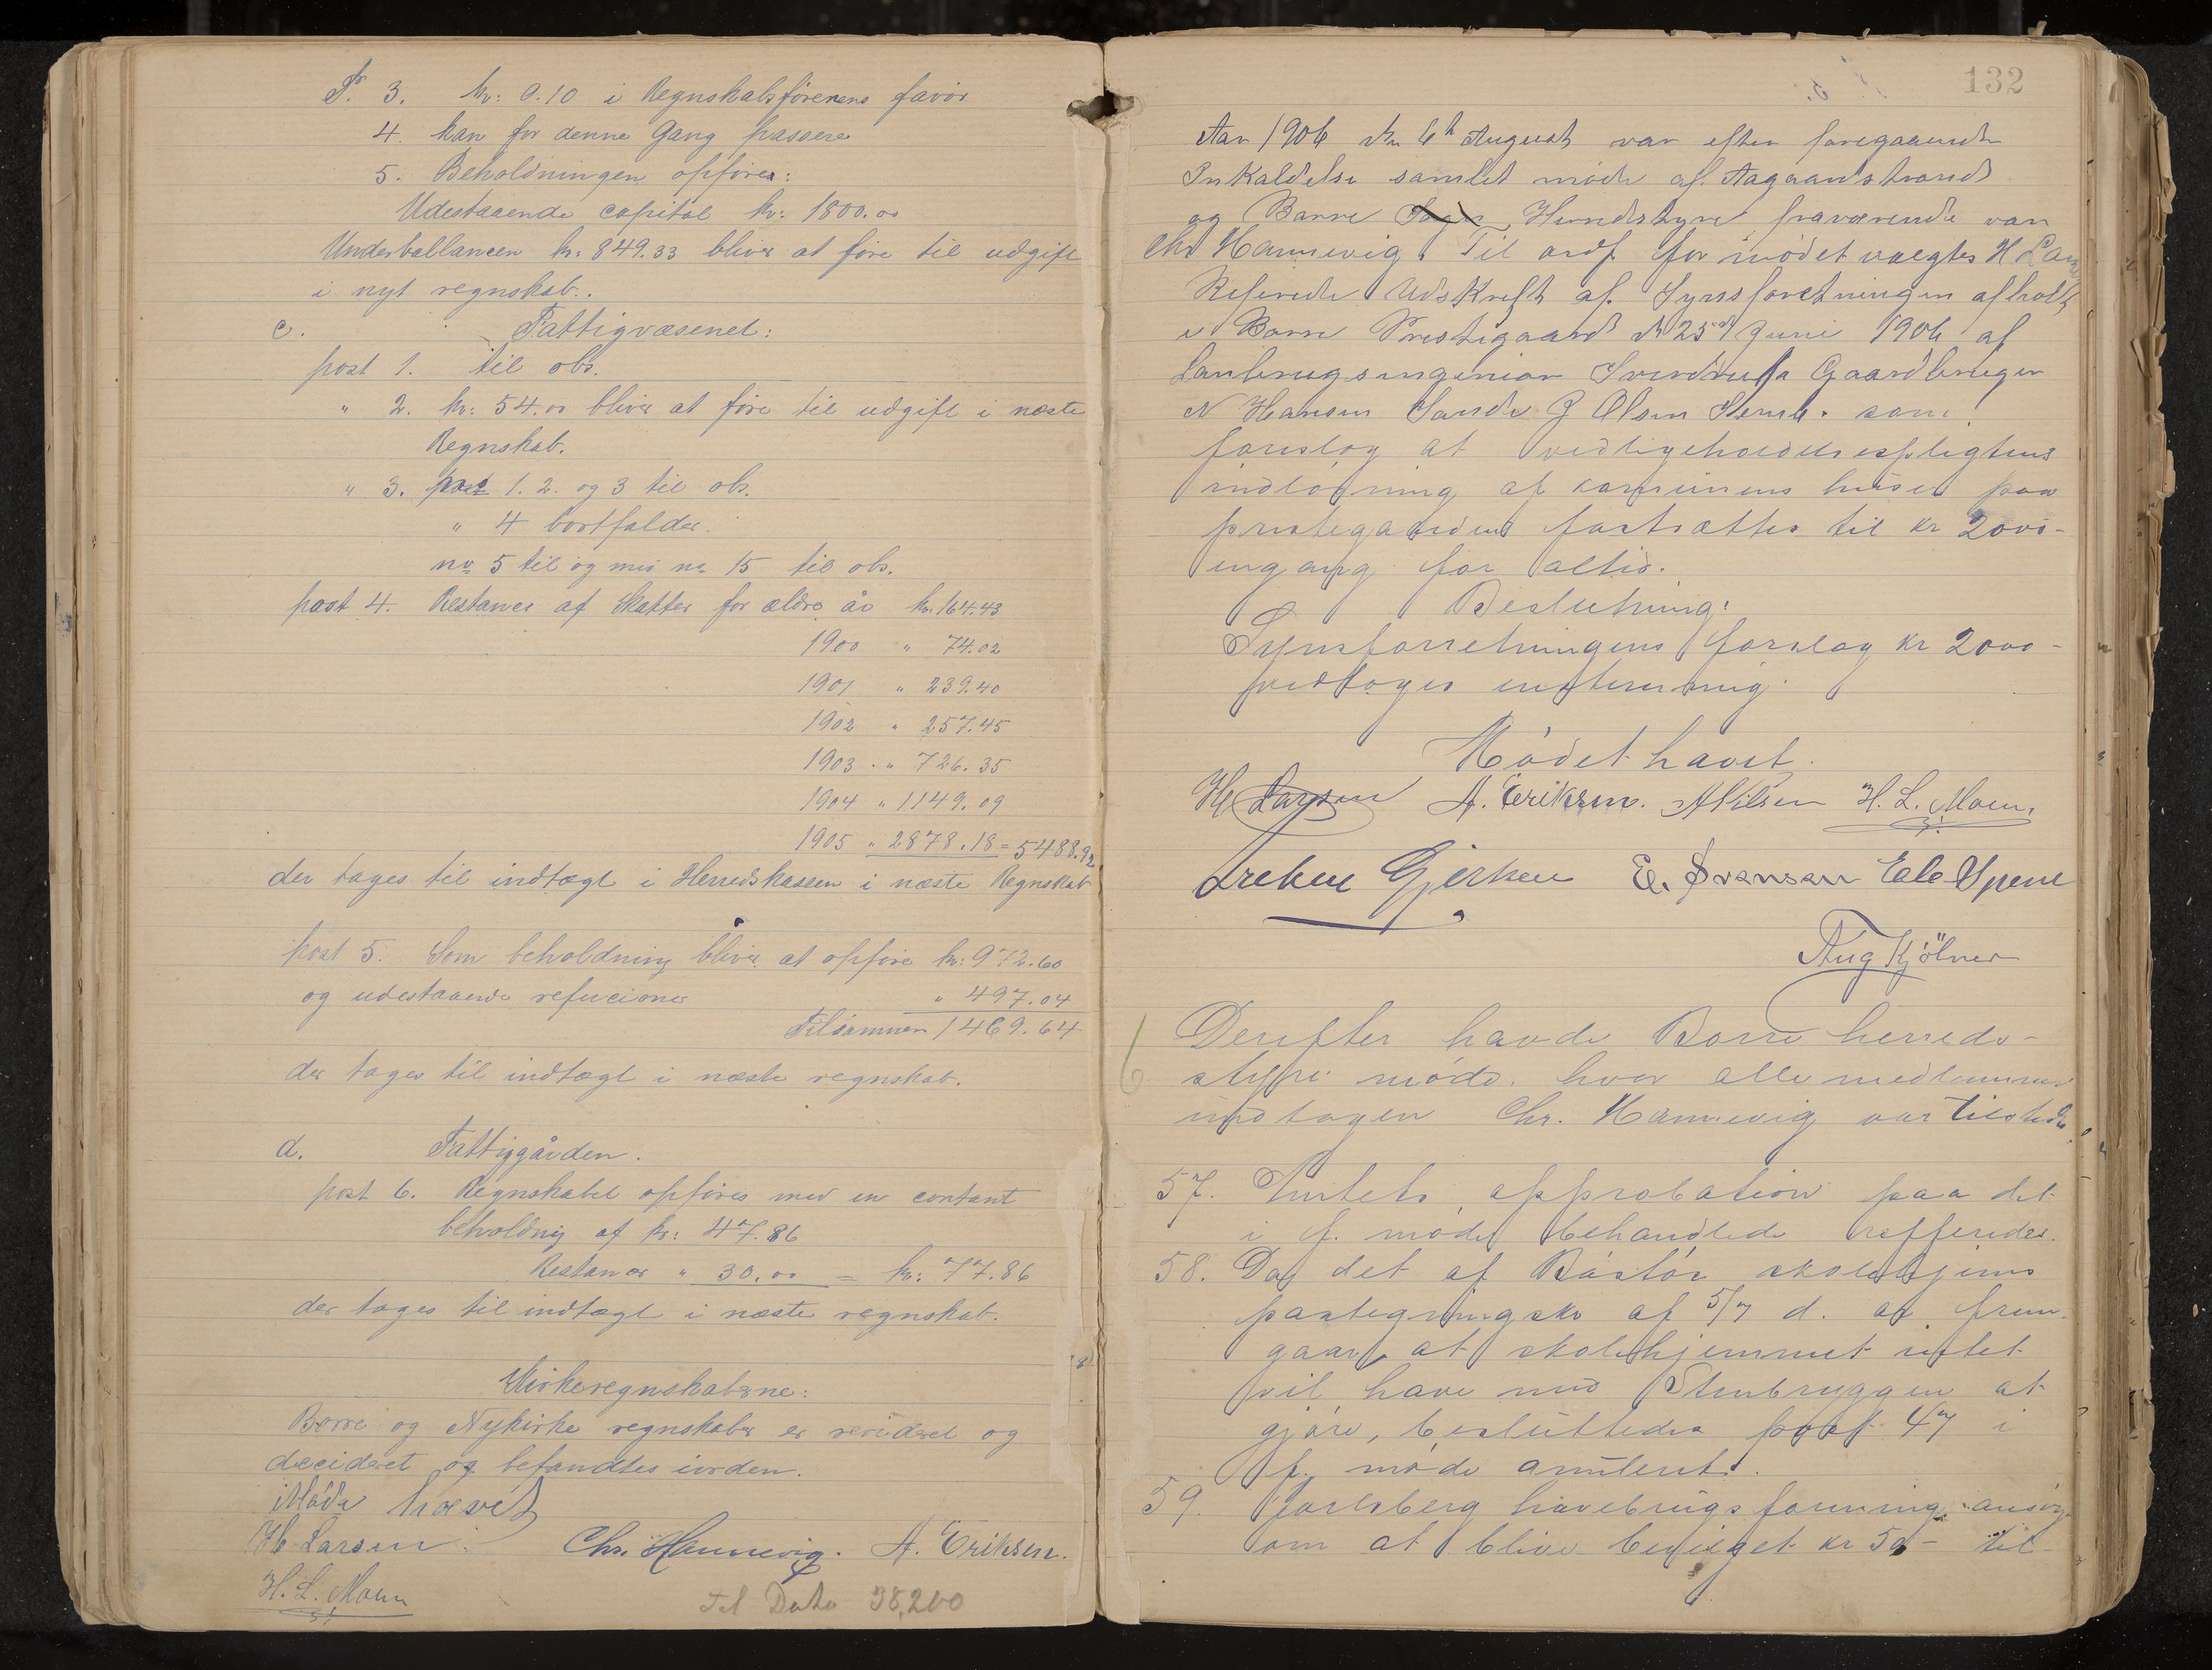 P. 3. kr: 0.10 i Regnskabsførerens favør
4. kan for denne Gang passere
5. Beholdningen opføres:
Udestaaende capital kr: 1800.00
Underballancen kr: 849.33 bliver at føre til udgift
i nyt regnskab.
c. Fattigvæsenet:
post 1. til obs.
" 2. kr: 54.00 bliver at føre til udgift i næste
Regnskab.
" 3. post 1. 2. og 3 til obs.
" 4 bortfalder.
no 5 til og med no 15 til obs.
post 4. Restancer af Skatter for ældre år kr. 164.43
1900 " 74.02
1901 " 239.40
1902 " 257.45
1903 " 726.35
1904 " 1149.09
1905 " 2878.18 = 5488.92
der tages til indtægt i Herredskassen i næste Regnskab
post 5. Som beholdning bliver at opføre kr: 972.60
og udestaaende refucioner " 497.04
Tilsammen 1469.64
der tages til indtægt i næste regnskab.
d. Fattiggården.
post 6. Regnskabet opføres med en contant
beholdnig af kr: 47.86
Restancer " 30.00 = kr: 77.86
der tages til indtægt i næste regnskab.
Kirkeregnskaberne:
Borre og Nykirke regnskaber er revideret og
decideret og befandtes iorden.
Møde hævet
H Larsen Chr. Hannevig. A. Eriksen.
H. L. Moen
Til Dato 38,200
132
Aar 1906 den 6te August var efter foregaaende
Inkaldelse samlet møde af Aagaardstrand
og Barre Sogn Herredstyre fraværende var
Chr Hannevig. Til ordf for mødet valgtes H Lars
Referede Udskrift af Synsforetningen afholt
i Borre Prestegaard d 25d Juni 1906 af
Lanbrugsingeniør Sverdrup Gaardbruger
N Hansen Sande J Olsen Semb. som
foreslog at vedligeholdelsespligtens
indløsning af kommunens huser paa
prestegaarden fastsættes til kr 2000-
engang for altid.
Beslutning:
Synsforretningens forslag kr 2000-
vedtoges enstemmig.
Mødet hævet.
H Larsen A. Eriksen. A Nilsen H. L. Moen,
Gjerken E. Svensen
Aug Kjölner
Derefter havde Borre herreds-
styre møde. hvor alle medlemmer
undtagen Chr. Hannevig var tilstede
6
57. Amtets approbation paa det
i f. møde behandlede refferedes.
58. Da det af Bastø skolehjems
paategning sees af 5/7 d. a. frem-
gaar, at skolehjemmet intet
vil have med Stenbryggen at
gjøre, besluttedes post 47 i
f. møde anuleret.
59. Jarlsberg havebrugsforening ansøg
om at blive bevilget kr 50- til